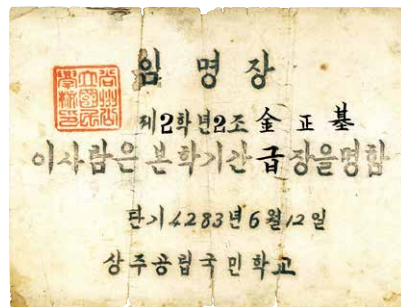 임명장
제2학년2조 金正基
이사람은 본학기간 급장을명함
단기4283년6월12일
상주공립국민학교